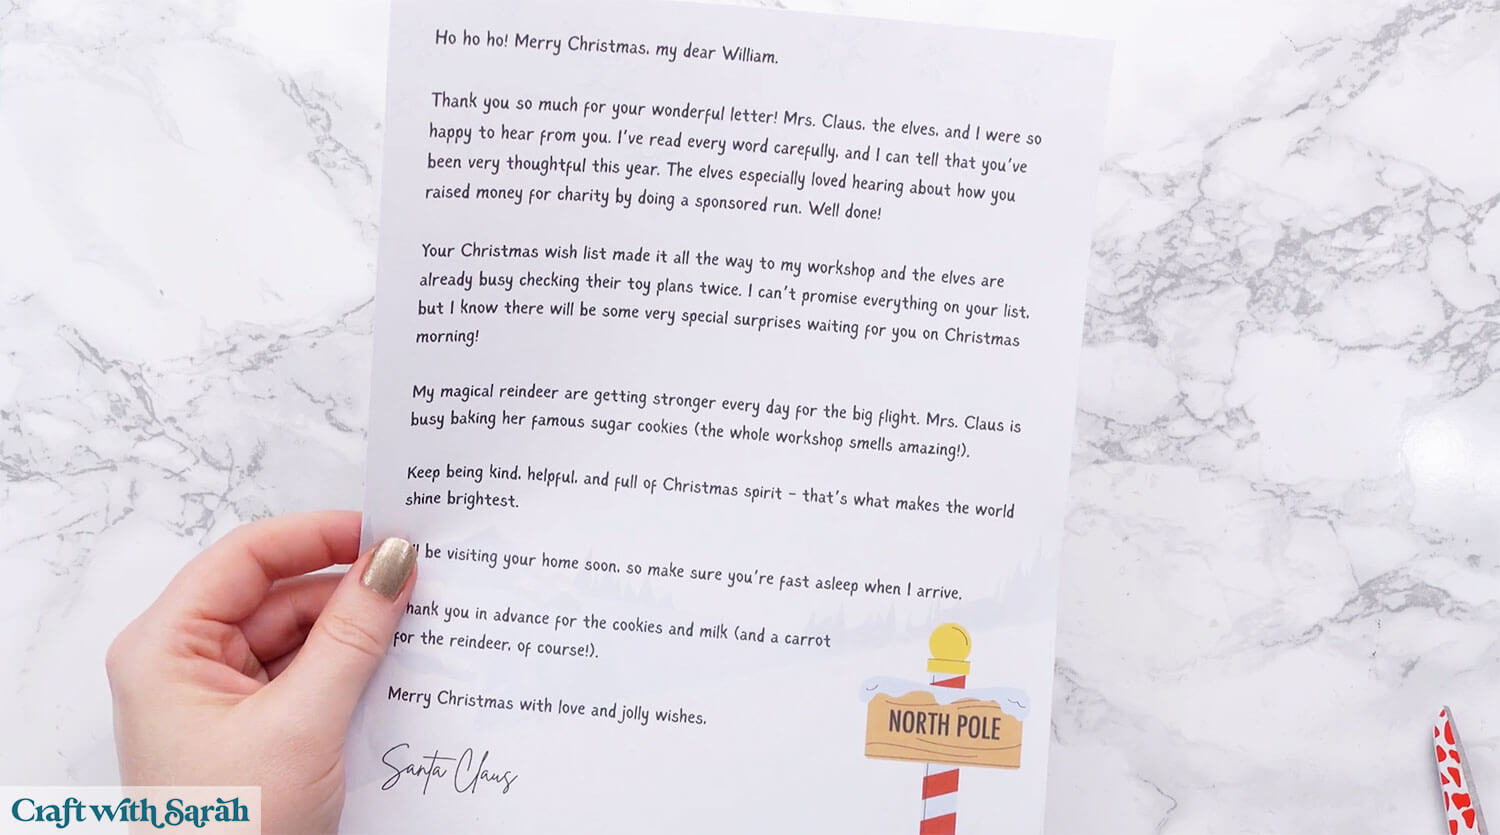 Ho ho ho! Merry Christmas, my dear William.
Thank you so much for your wonderful letter! Mrs. Claus, the elves, and I were so
happy to hear from you. I've read every word carefully, and I can tell that you've
been very thoughtful this year. The elves especially loved hearing about how you
raised money for charity by doing a sponsored run. Well done!
Your Christmas wish list made it all the way to my workshop and the elves are
already busy checking their toy plans twice. I can't promise everything on your list,
but I know there will be some very special surprises waiting for you on Christmas
morning!
My magical reindeer are getting stronger every day for the big flight. Mrs. Claus is
busy baking her famous sugar cookies (the whole workshop smells amazing!).
Keep being kind, helpful, and full of Christmas spirit – that's what makes the world
shine brightest.
be visiting your home soon, so make sure you're fast asleep when I arrive.
hank you in advance for the cookies and milk (and a carrot
for the reindeer, of course!).
Merry Christmas with love and jolly wishes,
Santa Claus
NORTH POLE
Craft with Sarah